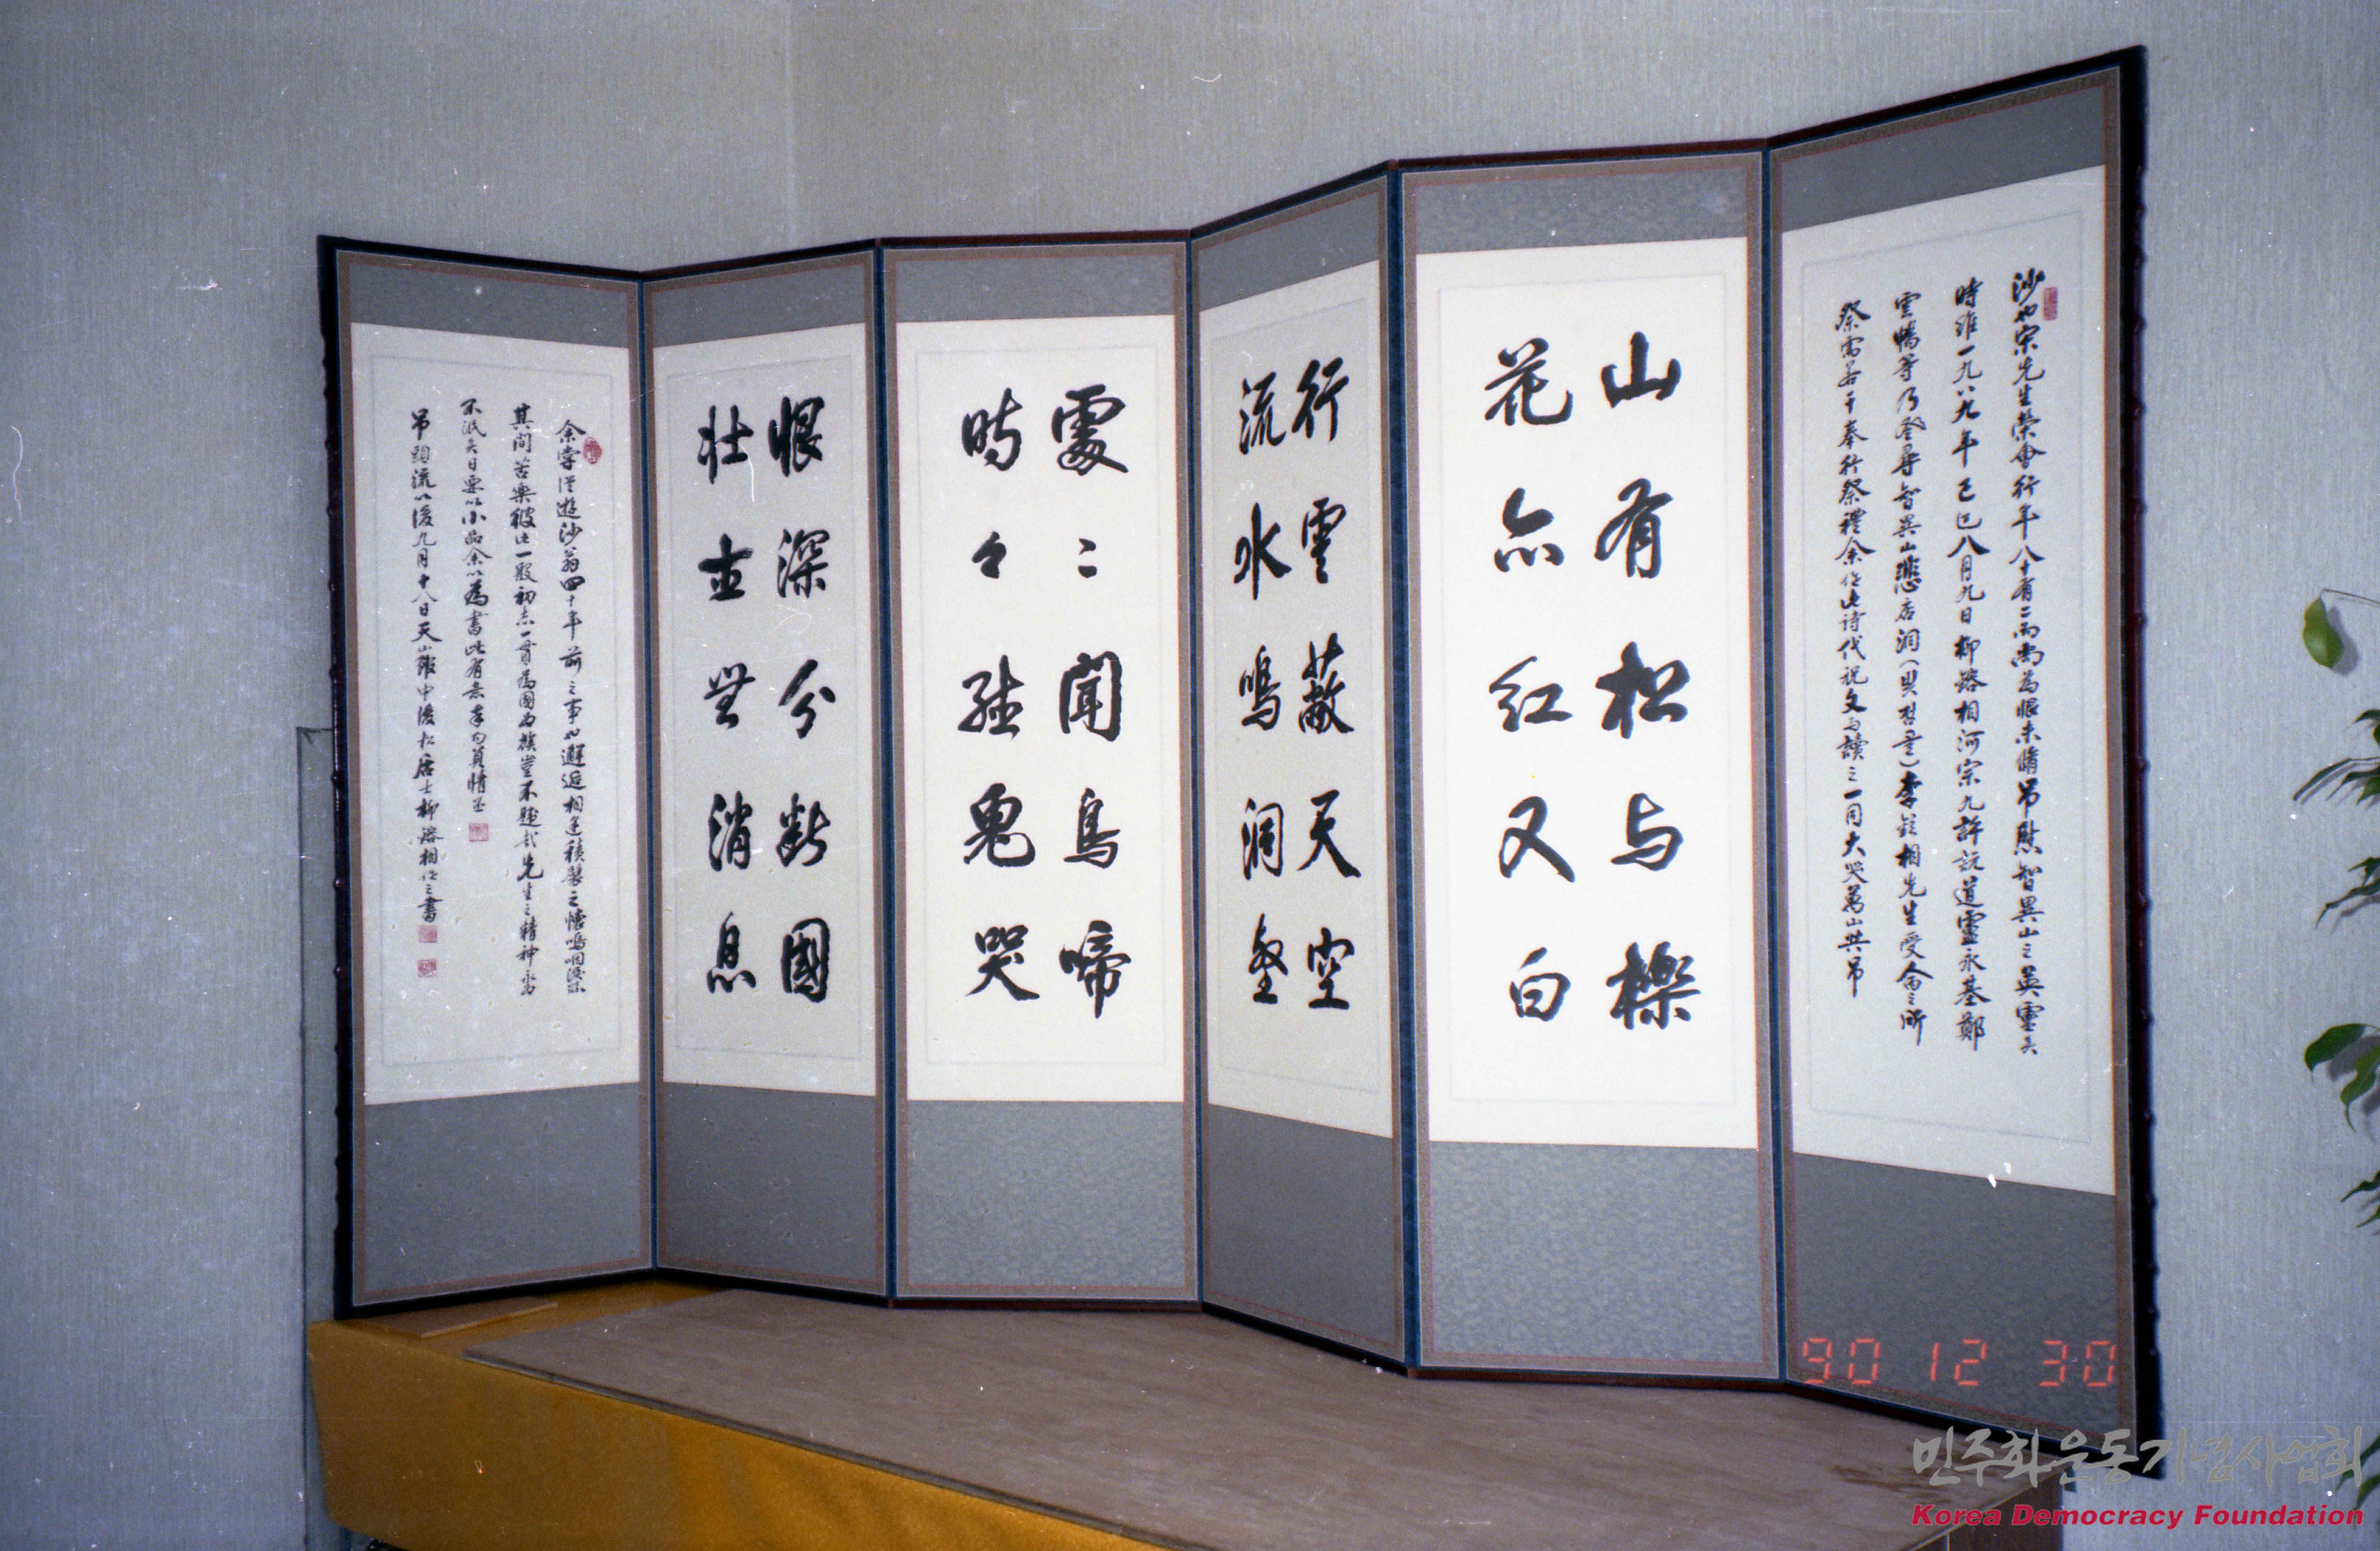 沙也宋先生榮會行年八十有二而尚為恨未脩吊慰智異山之英靈矣
時維一九八九年己巳八月九日柳熔相河宗九許沅道靈永基鄭
雲暢等乃登尋智異山悲店洞(빗점골)李鉉相先生受命之所
祭需若干奉行祭禮余作此詩代祝文而讀之一同大哭萬山共吊
山有松与櫟
花亦紅又白
行雲蔽天空
流水鳴洞壑
處〻聞鳥啼
時々聽鬼哭
恨深分斷國
壯士無消息
余嘗從遊沙翁四十年前之事也邂逅相逢積
其間苦樂彼此一般初志一貫為國為族豈不 先生之精神永
不泯矣日要以小品余以為書此有意
吊頭流以後九月十八日天山 中後松居士柳熔相作之書
90 12 30
민주화운동기념사업회
Korea Democracy Foundation